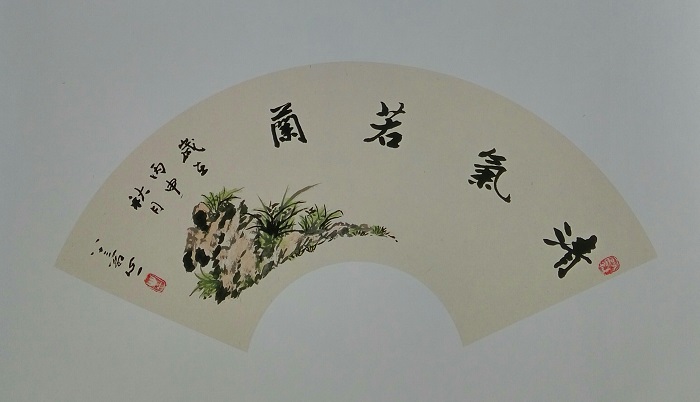 清氣若蘭
歲在
丙申
秋月